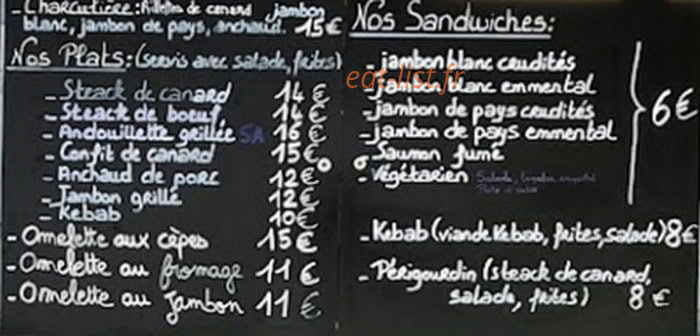 - Charcutière: Rillettes de canard, jambon
blanc, jambon de pays, anchaud. 15€
Nos Plats: (servis avec salade, frites)
- Steack de canard 14€
- Steack de boeuf 14€
- Andouillette grillée 5A 16€
- Confit de canard 15€
- Anchaud de porc 12€
- Jambon grillé 12€
- Kebab 10€
- Omelette aux cèpes 15€
- Omelette au fromage 11€
- Omelette au Jambon 11€
Nos Sandwiches:
- jambon blanc crudités
- jambon blanc emmental
- jambon de pays crudités
- jambon de pays emmental
- Saumon fumé
- Végétarien Salade,
6€
- Kebab (viande Kebab, frites, salade) 8€
- Périgourdin (steack de canard,
salade, frites) 8€
eat-list.fr